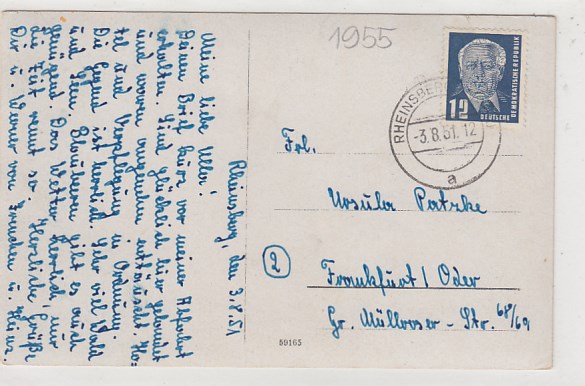 Rheinsberg, den 3.8.51
Meine liebe Ulla!
Deinen Brief kurz vor meiner Abfahrt
erhalten. Sind glücklich hier gelandet
und waren angenehm enttäuscht. Ho-
tel und Verpflegung in Ordnung.
Die Gegend ist herrlich. Sehr viel Wald
und See. Blaubeeren gibt es auch
genügend. Das Wetter herrlich, nur
die Zeit rennt so. Herzliche Grüße
Dir u. Werner von
u. Heinz.
1955
12
DEUTSCHE
DEMOKRATISCHE REPUBLIK
RHEINSBERG
-3.8.51.12
a
Frl.
Ursula Patzke
2
Frankfurt / Oder
Gr. Müllroser-Str. 68/69
59165